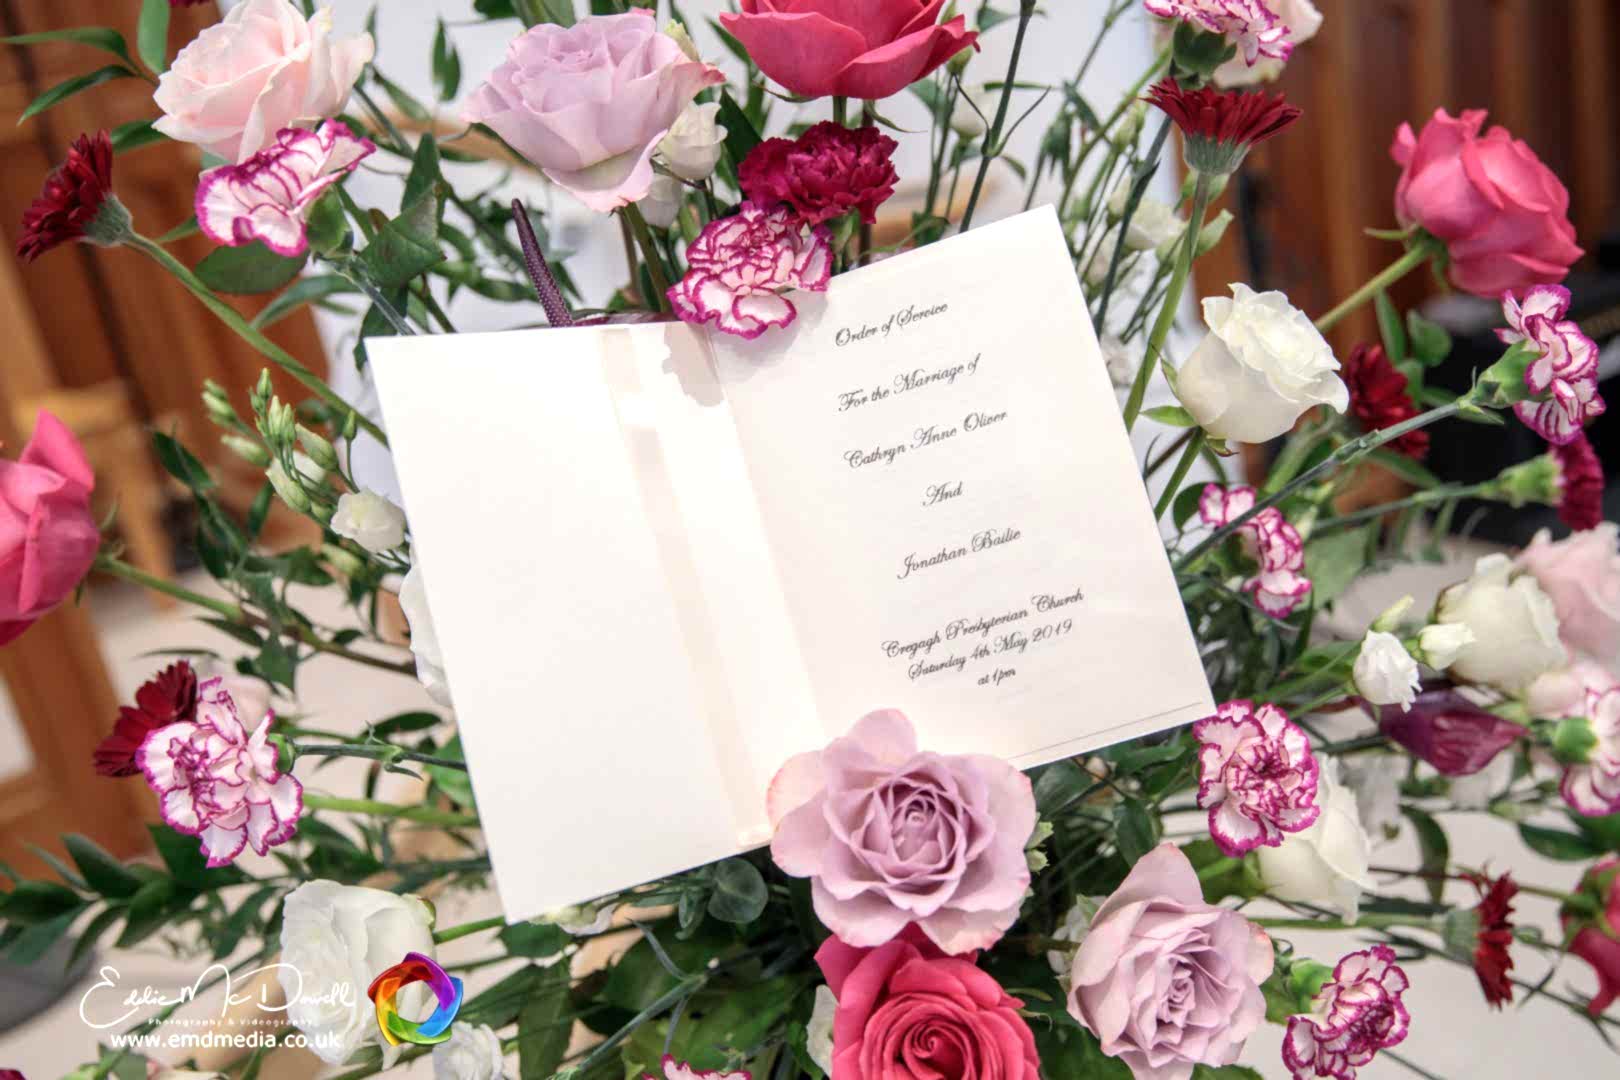 Order of Service
For the Marriage of
Cathryn Anne Oliver
And
Jonathan Bailie
Cregagh Presbyterian Church
Saturday 4th May 2019
at 1pm
Eddie McDowell
Photography & Videography
www.emdmedia.co.uk